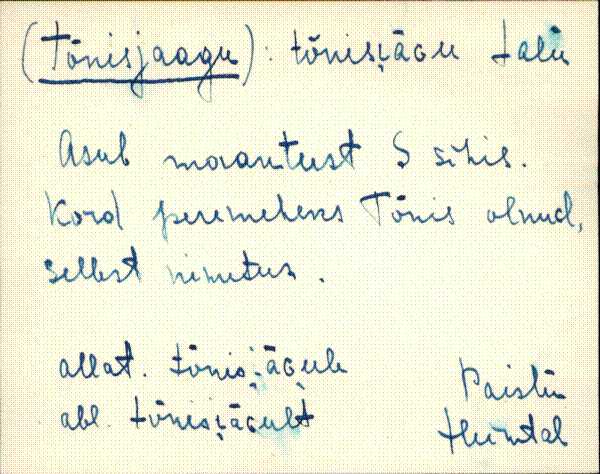 (Tõnisjaagu): tõnisi̭āɢu talu
Asub maantest S sihis.
Kord peremeheks Tõnis olnud,
sellest nimetus.
allat. tõnisi̭āɢulle
abl. tõnisi̭āɢult
Paistu
Heimtal